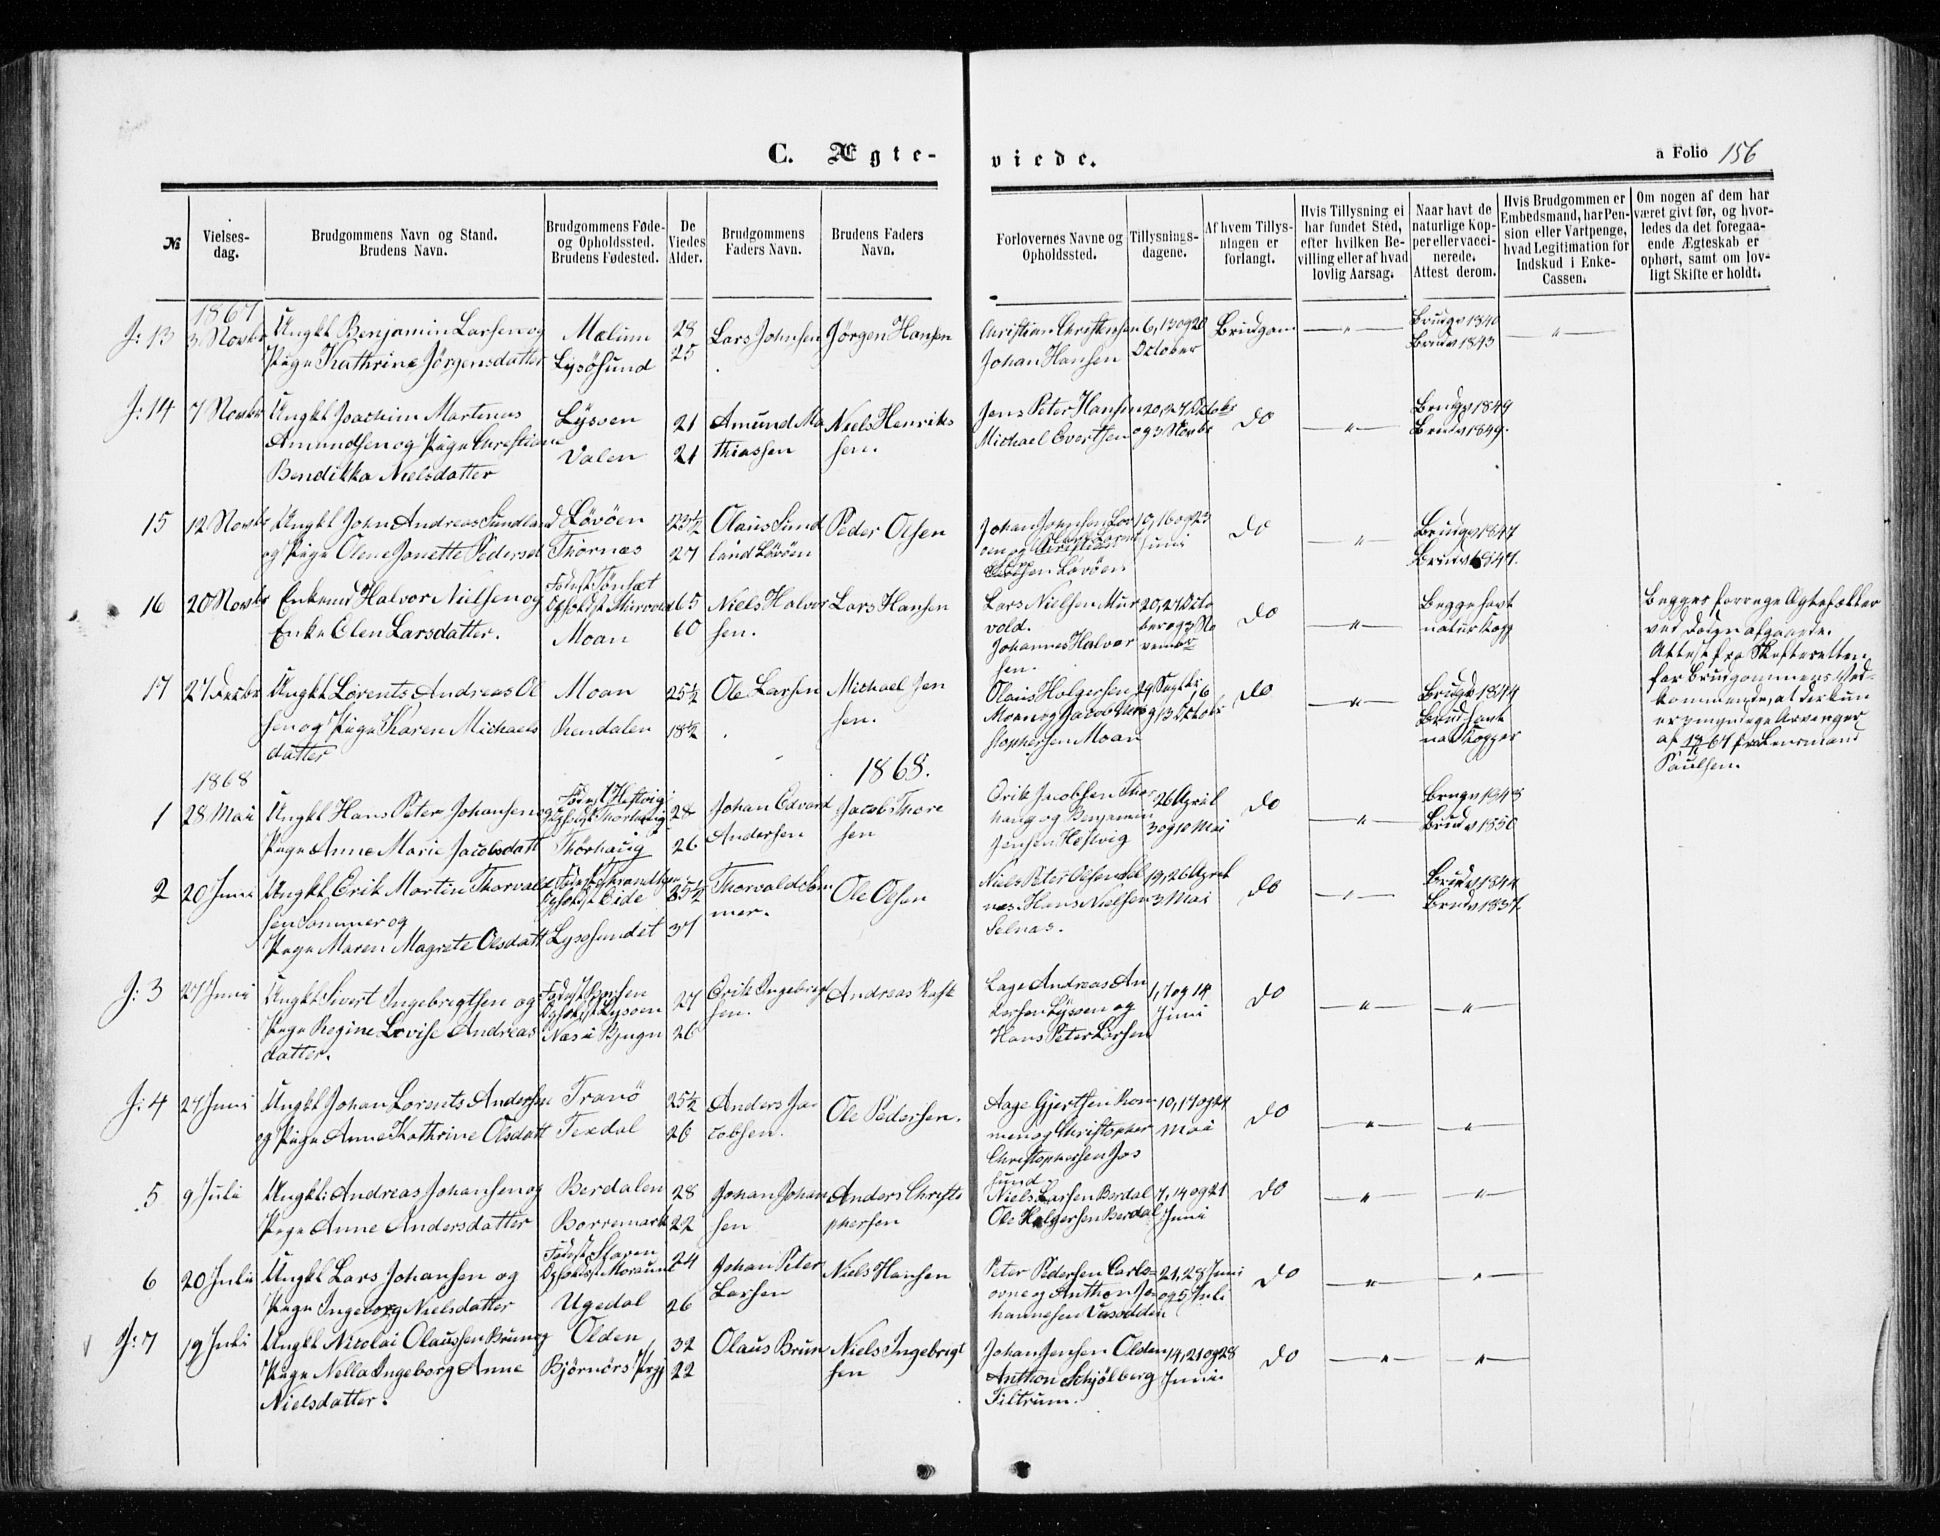 C. Ægte-
viede.
a Folio 156
№
Vielses-
dag.
Brudgommens Navn og Stand.
Brudens Navn.
Brudgommens Føde-
og Opholdssted.
Brudens Fødested.
De
Viedes
Alder.
Brudgommens
Faders Navn.
Brudens Faders
Navn.
Forlovernes Navne og
Opholdssted.
Tillysnings-
dagene.
Af hvem Tillys-
ningen er
forlangt.
Hvis Tillysning ei
har fundet Sted,
efter hvilken Be-
villing eller af hvad
lovlig Aarsag.
Naar havt de
naturlige Kop-
per eller vacci-
nerede.
Attest derom.
Hvis Brudgommen er
Embedsmand, har Pen-
sion eller Vartpenge,
hvad Legitimation for
Indskud i Enke-
Cassen.
Om nogen af dem har
været givt før, og hvor-
ledes da det foregaa-
ende Ægteskab er
ophørt, samt om lov-
ligt Skifte er holdt.
1867
J: 13
3 Novbr
Ungkl Benjamin Larsen og
Pige Kathrine Jørgensdatter
Mælum
Lysøsund
28
25
Lars Johnsen
Jørgen Hansen
Christian Christensen
Johan Hansen
6, 13 og 20
October
Brudgom
Brudgv 1840
Brudv 1843
J: 14
7 Novbr
Ungkl Joachim Martinus
Amundsen og Pige Christiane
Bendikka Nielsdatter
Lyssen
Valen
21
21
Amund Ma
thiassen
Niels Henriks
sen.
Jens Peter Hansen
Michael Evertsen
20, 27 Octobr
og 3 Novbr
do
Brudgv 1849
Brudv 1849.
15
12 Novbr
Ungkl John Andreas Sundland
og Pige Oline Janette Pedersd
Løvøen
Thornæs
23½
27
Olaus Sund
land Løvøen
Peder Olsen
Johan Johnsen Løv
øen og Christian
Løvøen
10, 16 og 23
Juni
do
Brudgv 1847
Brudv 1847.
16
20 Novbr
Enkemd Halvor Nielsen og
Enke Elen Larsdatter.
Fødest Tønset
Opholdst Murvold
Moan
65
60
Niels Halvor
sen.
Lars Hansen
Lars Nielsen Mur
vold.
Johannes Halvor
sen.
20, 27 Octo
ber og 3 No
vembr
do
Begge havt
natur Kopp
Begges forrige Ægtefæller
ved Døden afgaaede.
Attest fra Skifteretten
for Brudgommens Ved-
kommende, at der kun
er myndige Arvinger
af 18/11 67 fra Lensmand
Paulsen.
17
27 Decbr
Ungkl Lorents Andreas Ol
sen og Pige Karen Michaels
datter
Moan
Rendalen
25½
18½
Ole Larsen
Michael Jen
sen.
Olaus Holgersen
Moen og Jacob Chri
stophersen Moan
29 Septbr, 6
og 13 Octobr
do
Brudgv 1844
Brud havt
nat Kopper
1868
1868.
1
28 Mai
Ungkl Hans Peter Johansen og
Pige Anne Marie Jacobsdatt
Fødest Hestvig
Opholdst Thorhaug
Thørhaug
28
26
Johan Edvard
Andersen
Jacob Thore
sen
Erik Jacobsen Thor
haug og Benjamin
Jensen Hestvig
26 April
3 og 10 Mai
do
Brugv 1845
Brudv 1850
2
20 Juni
Ungkl Erik Martin Thorvald
sen Sommer og
Pige Maren Magrete Olsdatt
Fødest Throndhjem
Opholdst Eide
Lysøsundet
25½
37
Thorvald Som
mer.
Ole Olsen
Niels Peter Olsen Sel
næs. Hans Nielsen
Selnæs.
19, 26 April
3 Mai
do
Brudv 1844
Brudv 1837
J: 3
27 Juni
Ungkl Sivert Ingebrigtsen og
Pige Regine Lovise Andreas
datter.
Fødest Børsen
Opholdst Lysøen
Næs i Bjugn
27
26
Erik Ingebrigt
sen.
Andreas Rask
Lage Andreas An
dersen Lysøen og
Hans Peter Larsen
1, 7 og 14
Juni
do
J: 4
27 Juni
Ungkl Johan Lorents Andersen
og Pige Anne Kathrine Olsdatt
Tranö
Texdal
25½
26
Anders Ja
cobsen.
Ole Pedersen.
Aage Gjertsen Rom
men og Christopher
Christophersen Jøs
sund.
10, 17 og 24
Mai
do
5
9 Juli
Ungkl: Andreas Johansen og
Pige Anne Andersdatter
Berdalen
Borremark
28
22
Johan Johan
sen
Anders Christo
phersen
Niels Larsen Berdal
Ole Holgersen Berdal
7, 14 og 21
Juni
do
6
20 Juli
Ungkl Lars Johansen og
Pige Ingeborg Nielsdatter
Fødest Staren
Opholdst Moraune
Ugedal
24
26
Johan Peter
Larsen
Niels Hansen
Peter Pedersen Carls-
ovne og Anthon Jo
hannesen Vasodden
21, 28 Juni
og 5 Juli
do
J: 7
19 Juli
Ungkl Nicolai Olaussen Brun og
Pige Nella Ingeborg Anne
Nielsdatter.
Olden
Bjørnørs Prgj
32
22
Olaus Brun
Niels Ingebrigt
sen
Johan Jensen Olden
Anthon Schjølberg
Tiltrum.
14, 21 og 28
Juni
do